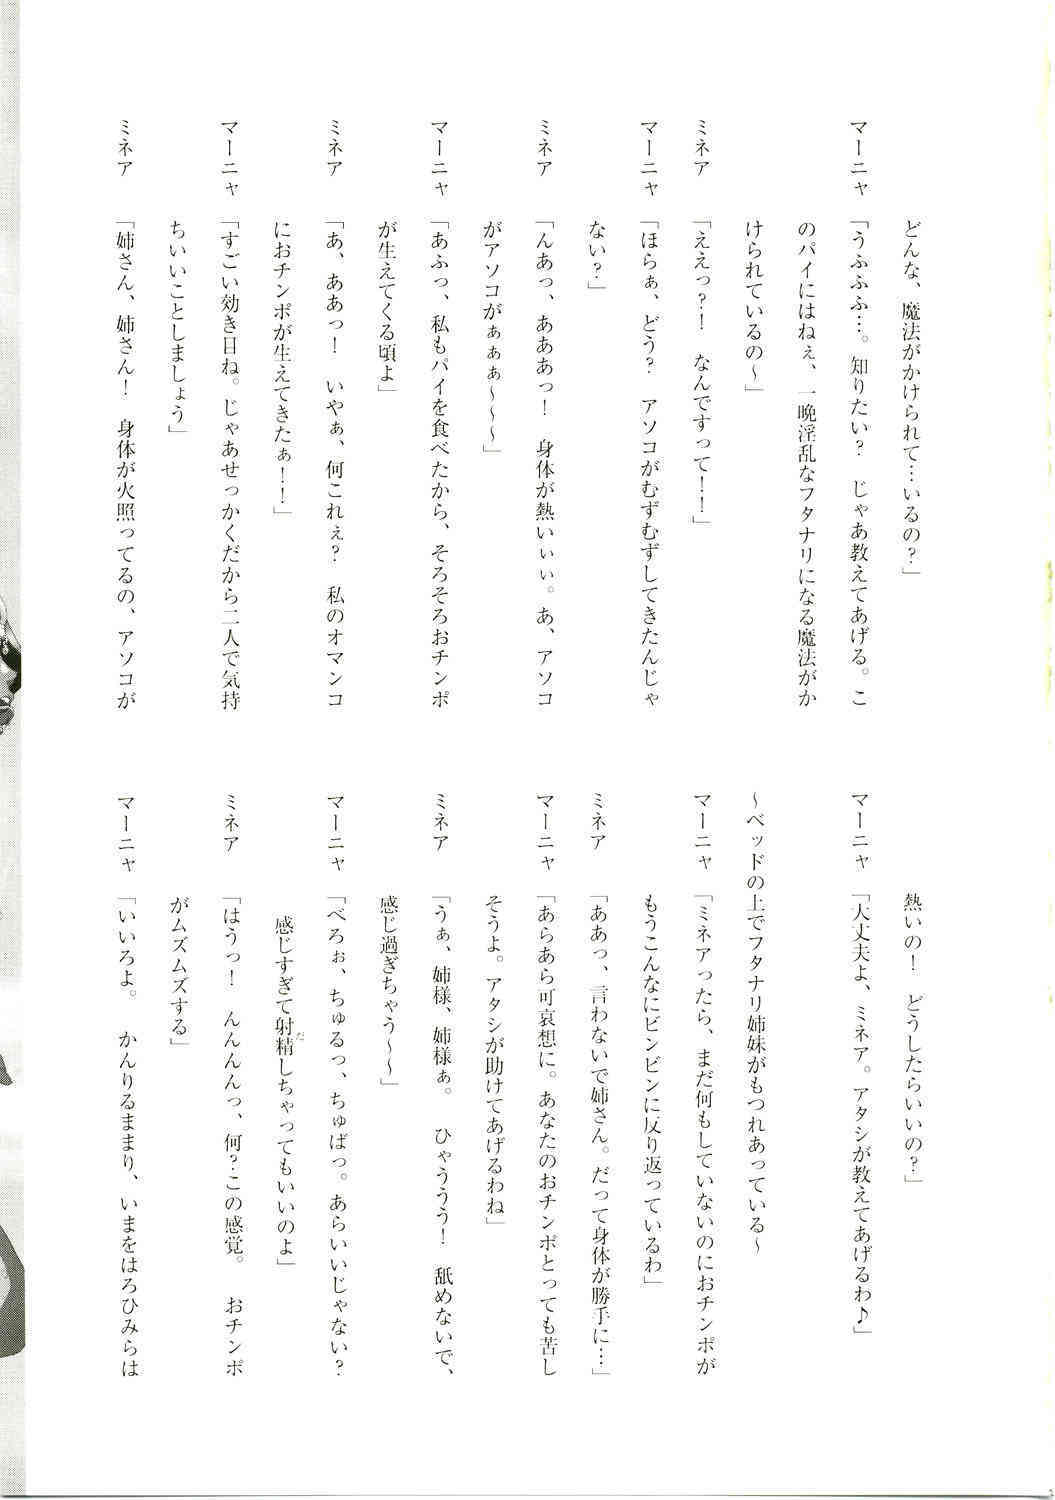 どんな、魔法がかけられて…いるの？」
マーニャ 「うふふふ…。知りたい？　じゃあ教えてあげる。こ
のパイにはねぇ、一晩淫乱なフタナリになる魔法がか
けられているの～」
ミネア 「ええっ？！　なんですって！！」
マーニャ 「ほらぁ、どう？　アソコがむずむずしてきたんじゃ
ない？」
ミネア 「んあっ、あああっ！　身体が熱いぃぃ。あ、アソコ
がアソコがぁぁぁ～～～」
マーニャ 「あふっ、私もパイを食べたから、そろそろおチンポ
が生えてくる頃よ」
ミネア 「あ、ああっ！　いやぁ、何これぇ？　私のオマンコ
におチンポが生えてきたぁ！！」
マーニャ 「すごい効き目ね。じゃあせっかくだから二人で気持
ちいいことしましょう」
ミネア 「姉さん、姉さん！　身体が火照ってるの、アソコが
熱いの！　どうしたらいいの？」
マーニャ 「大丈夫よ、ミネア。アタシが教えてあげるわ♪」
～ベッドの上でフタナリ姉妹がもつれあっている～
マーニャ 「ミネアったら、まだ何もしていないのにおチンポが
もうこんなにビンビンに反り返っているわ」
ミネア 「ああっ、言わないで姉さん。だって身体が勝手に…」
マーニャ 「あらあら可哀想に。あなたのおチンポとっても苦し
そうよ。アタシが助けてあげるわね」
ミネア 「うぁ、姉様、姉様ぁ。　ひゃううう！　舐めないで、
感じ過ぎちゃう～～」
マーニャ 「べろぉ、ちゅるっ、ちゅばっ。あらいいじゃない？
感じすぎて射精しちゃってもいいのよ」
だ
ミネア 「はうっ！　んんんんっ、何？この感覚。　おチンポ
がムズムズする」
マーニャ 「いいろよ。　かんりるままり、いまをはろひみらは